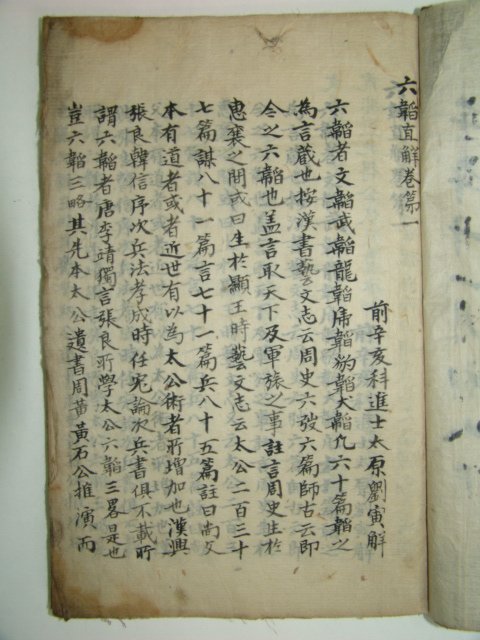 六韜直解卷第一
前辛亥科進士太原劉寅解
六韜者文韜武韜龍韜虎韜豹韜犬韜凢六十篇韜之
為言藏也按漢書藝文志云周史六弢六篇師古云即
今之六韜也盖言取天下及軍旅之事註言周史生於
惠襄之間或曰生於顯王時藝文志云太公二百三十
七篇謀八十一篇言七十一篇兵八十五篇註曰尚父
本有道者或者近世有以為太公術者所增加也漢興
張良韓信序次兵法孝成時任宏論次兵書俱不載所
謂六韜者唐李靖獨言張良所學太公六韜三畧是也
豈六韜三略其先本太公遺書周黃黃石公推演而